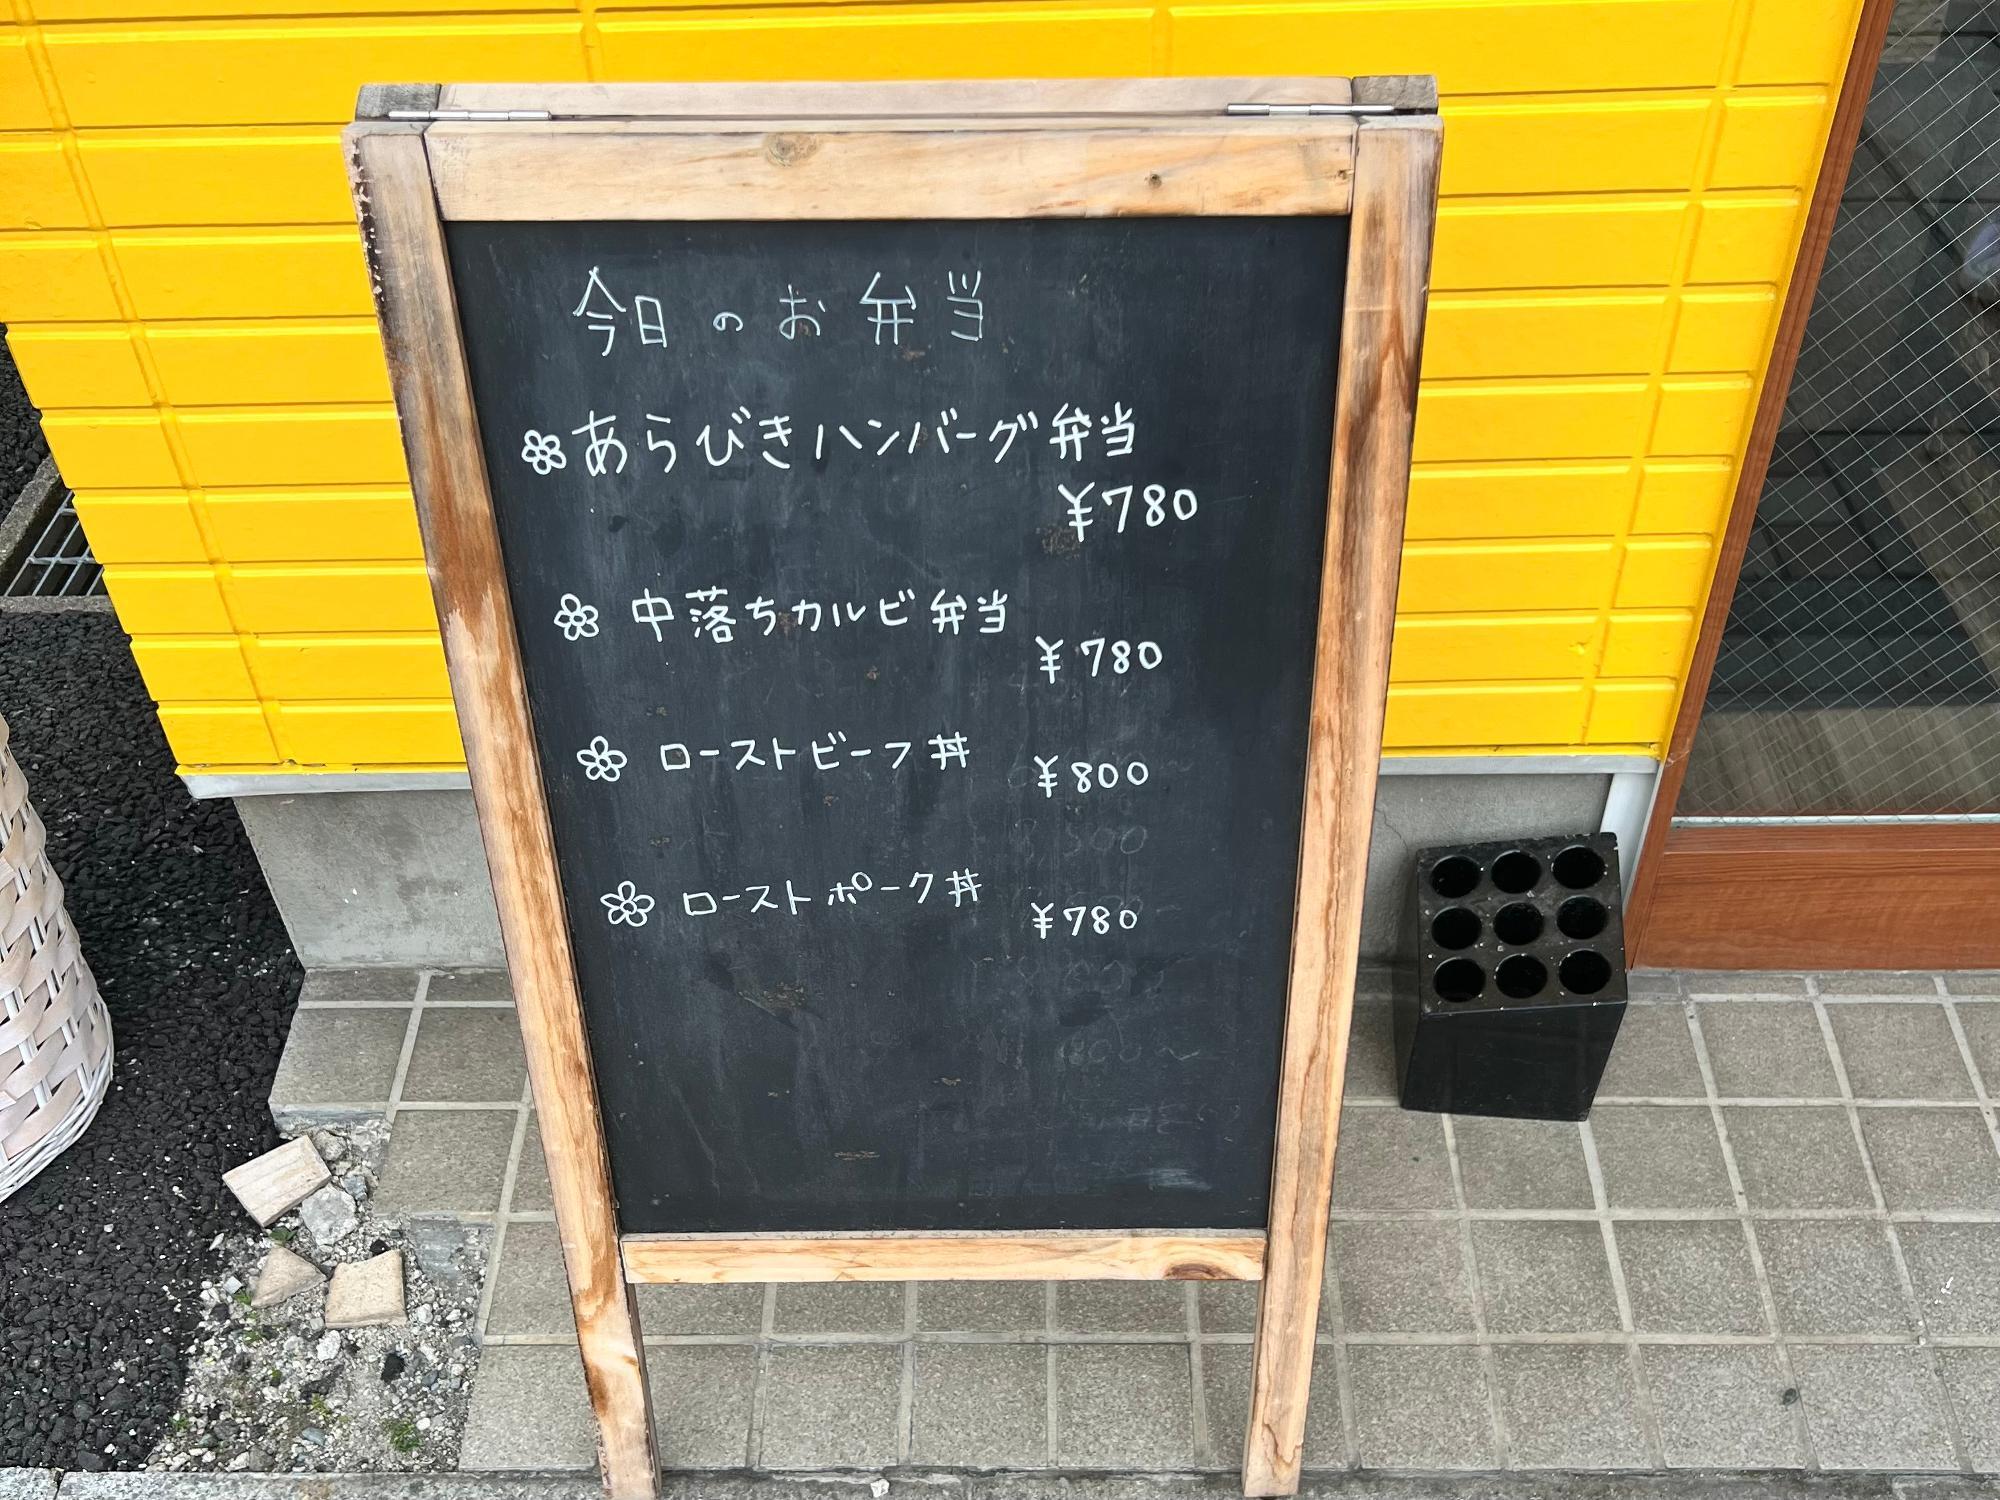 今日のお弁当
あらびきハンバーグ弁当
¥780
中落ちカルビ弁当
¥780
ローストビーフ丼 ¥800
ローストポーク丼 ¥780